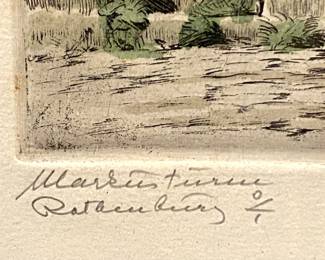 Markusturm
Rothenburg o/T